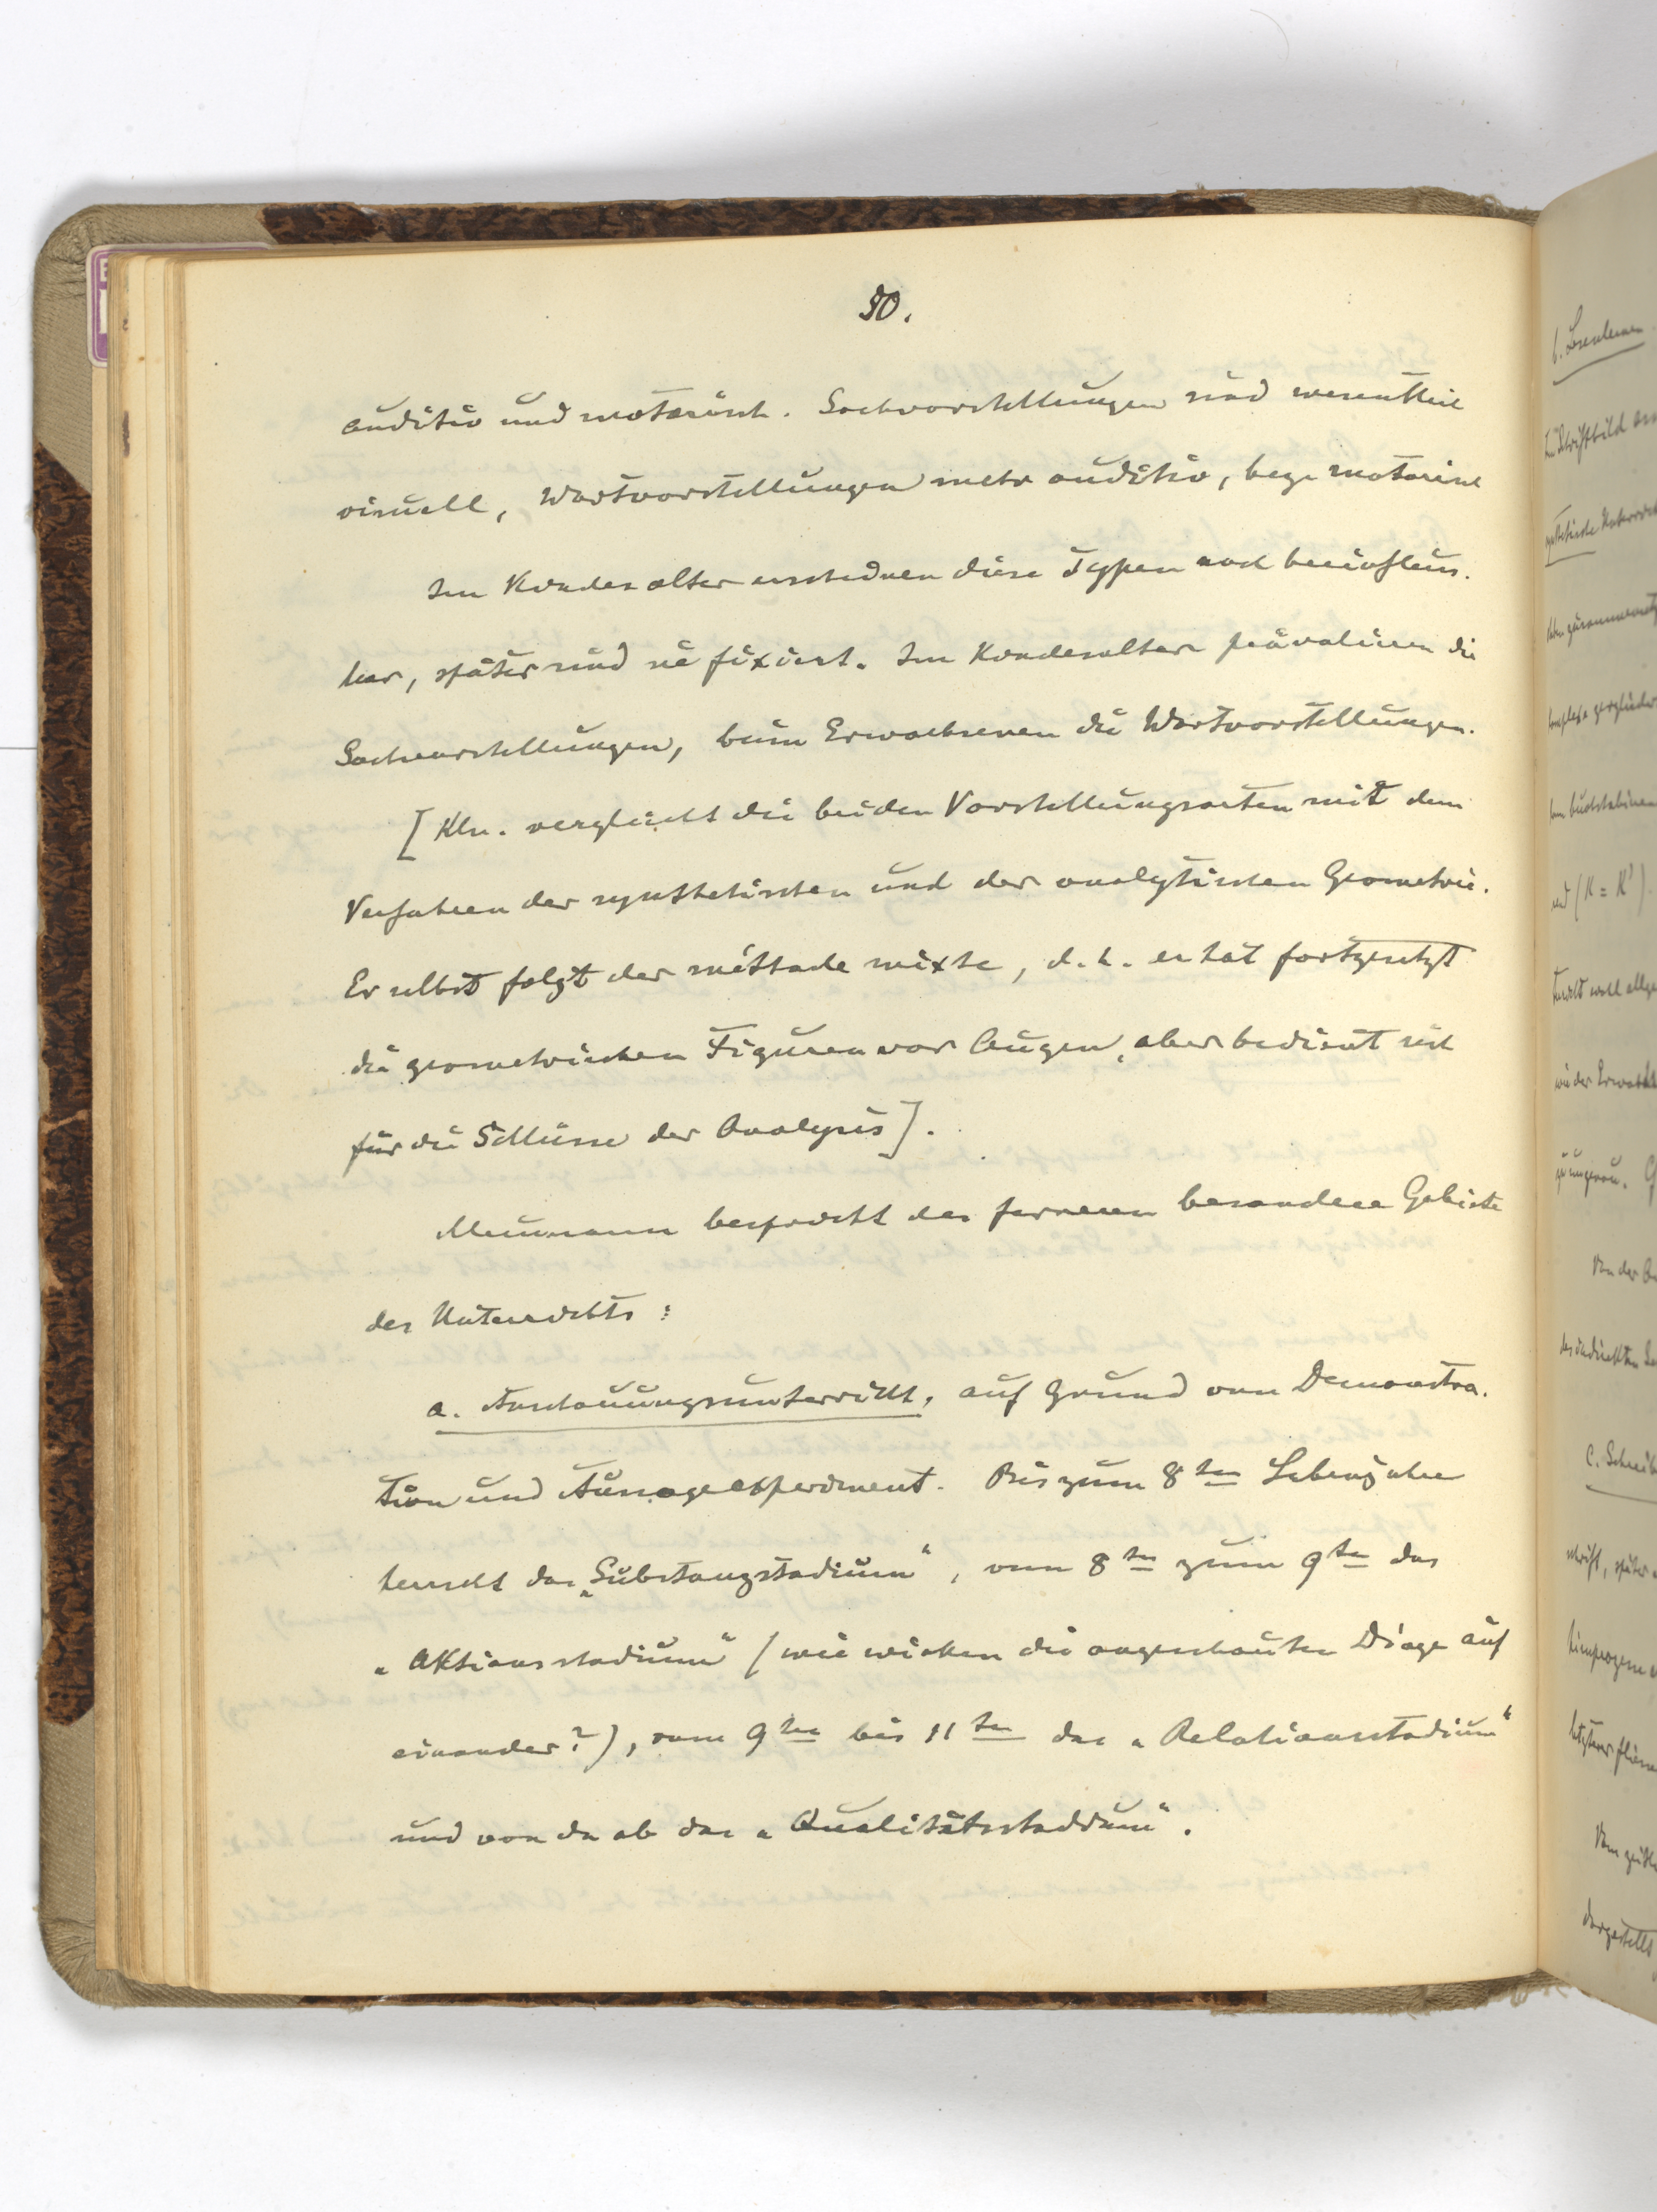 50.
auditiv und motorisch. Sachvorstellungen sind wesentlich
visuell, Wortvorstellungen mehr auditiv, bezw motorisch
Im Kindesalter erscheinen diese Typen noch beeinfluss-
bar, später sind sie fixiert. Im Kindesalter prävalieren die
Sachvorstellungen, beim Erwachsenen die Wortvorstellungen.
[Kln. vergleicht die beiden Vorstellungsarten mit dem
Verfahren der synthetischen und der analytischen Geometrie.
Er selbst folgt der méthode mixte, d.h. er hat fortgesetzt
die geometrischen Figuren vor Augen, aber bedient sich
für die Schlüsse der Analysis].
Meumann bespricht des ferneren besondere Gebiete
des Unterrichts:
a. Anschauungsunterricht, auf Grund von Demonstra-
tion und Aussageexperiment. Bis zum 8ten Lebensjahre
herrscht das „Substanzstadium“, vom 8ten zum 9ten das
„Aktionsstadium“ (wie wirken die angeschauten Dinge auf
einander?), vom 9ten bis 11ten das „Relationsstadium“
und von da ab das „Qualitätsstadium“.
b. Lesenlernen
Schriftbild
synthetische
(K = K')
wohl
wie der
Von der
C. Schreib
schrift, später
Vom
dargestellt